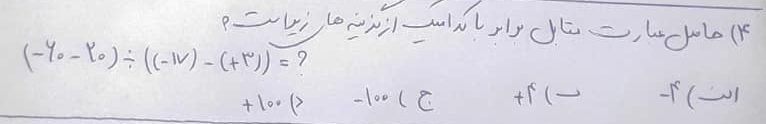 ۴) حاصل عبارت مقابل برابر با کدامیک از گزینه های زیر است؟
(-۶۰ - ۲۰) ÷ ((-۱۷) - (+۳)) = ?
الف) -۴ ب) +۴ ج) -۱۰۰ د) +۱۰۰